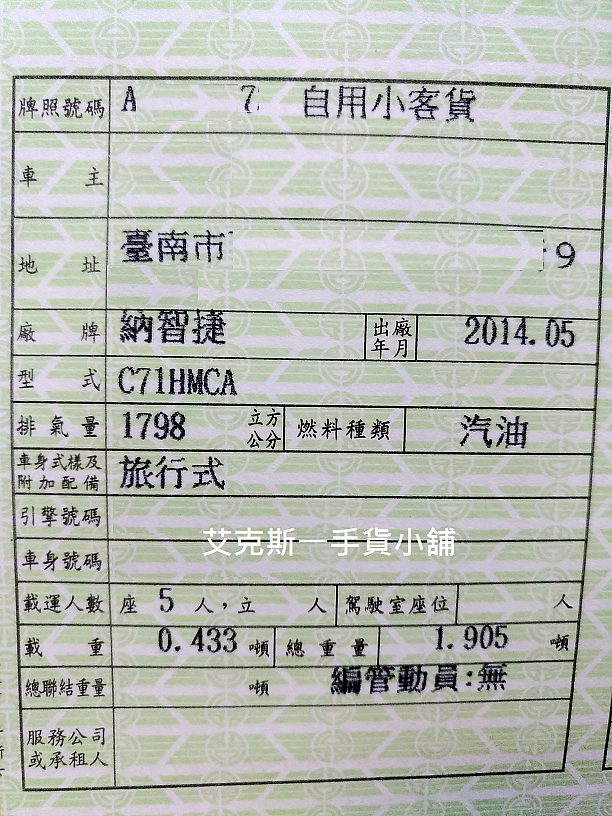 牌照號碼 A 7 自用小客貨
車主
地址 臺南市 9
廠牌 納智捷 出廠年月 2014.05
型式 C71HMCA
排氣量 1798 立方公分 燃料種類 汽油
車身式樣及附加配備 旅行式
引擎號碼
艾克斯一手貨小舖
車身號碼
載運人數 座 5 人，立 人 駕駛室座位 人
載重 0.433 噸 總重量 1.905 噸
總聯結重量 噸 編管動員:無
服務公司或承租人